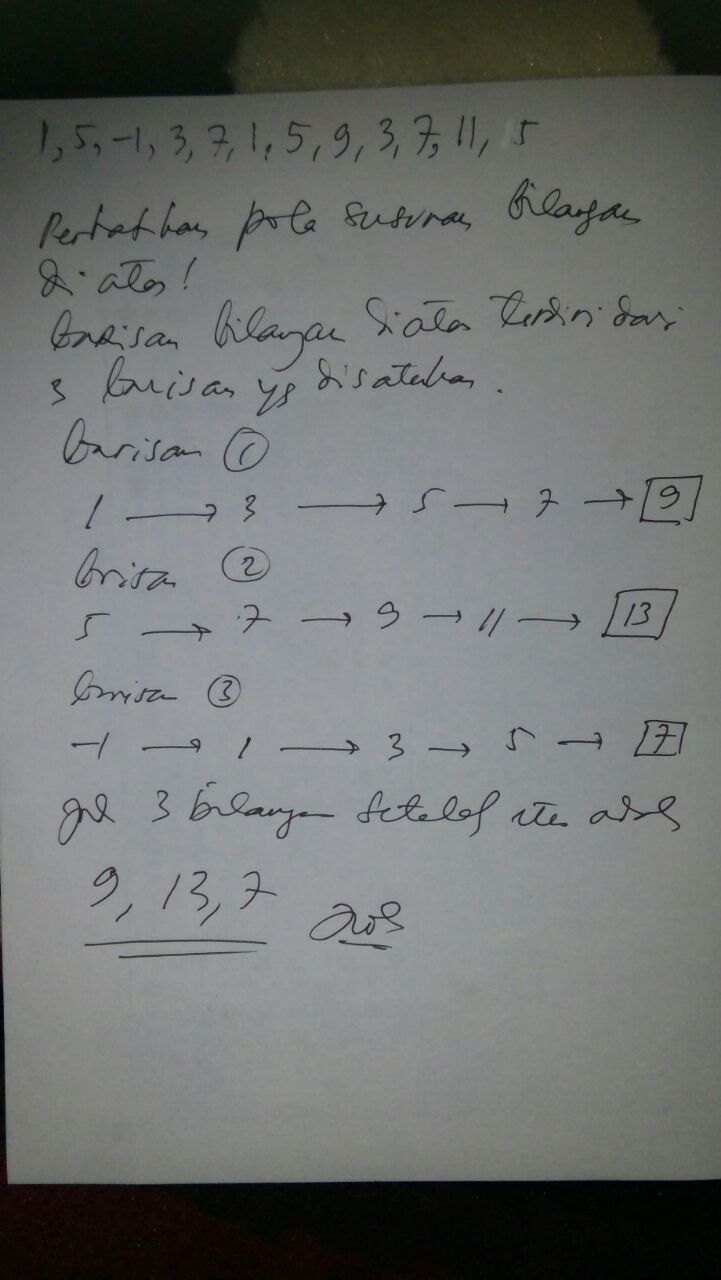 1, 5, -1, 3, 7, 1, 5, 9, 3, 7, 11, 5
Perhatikan pola susunan bilangan
di atas!
barisan bilangan diatas terdiri dari
3 barisan yg disatukan.
barisan ①
1 → 3 → 5 → 7 → 9
brisan ②
5 → 7 → 9 → 11 → 13
brisan ③
-1 → 1 → 3 → 5 → 7
3 bilangan setelah itu adlh
9, 13, 7